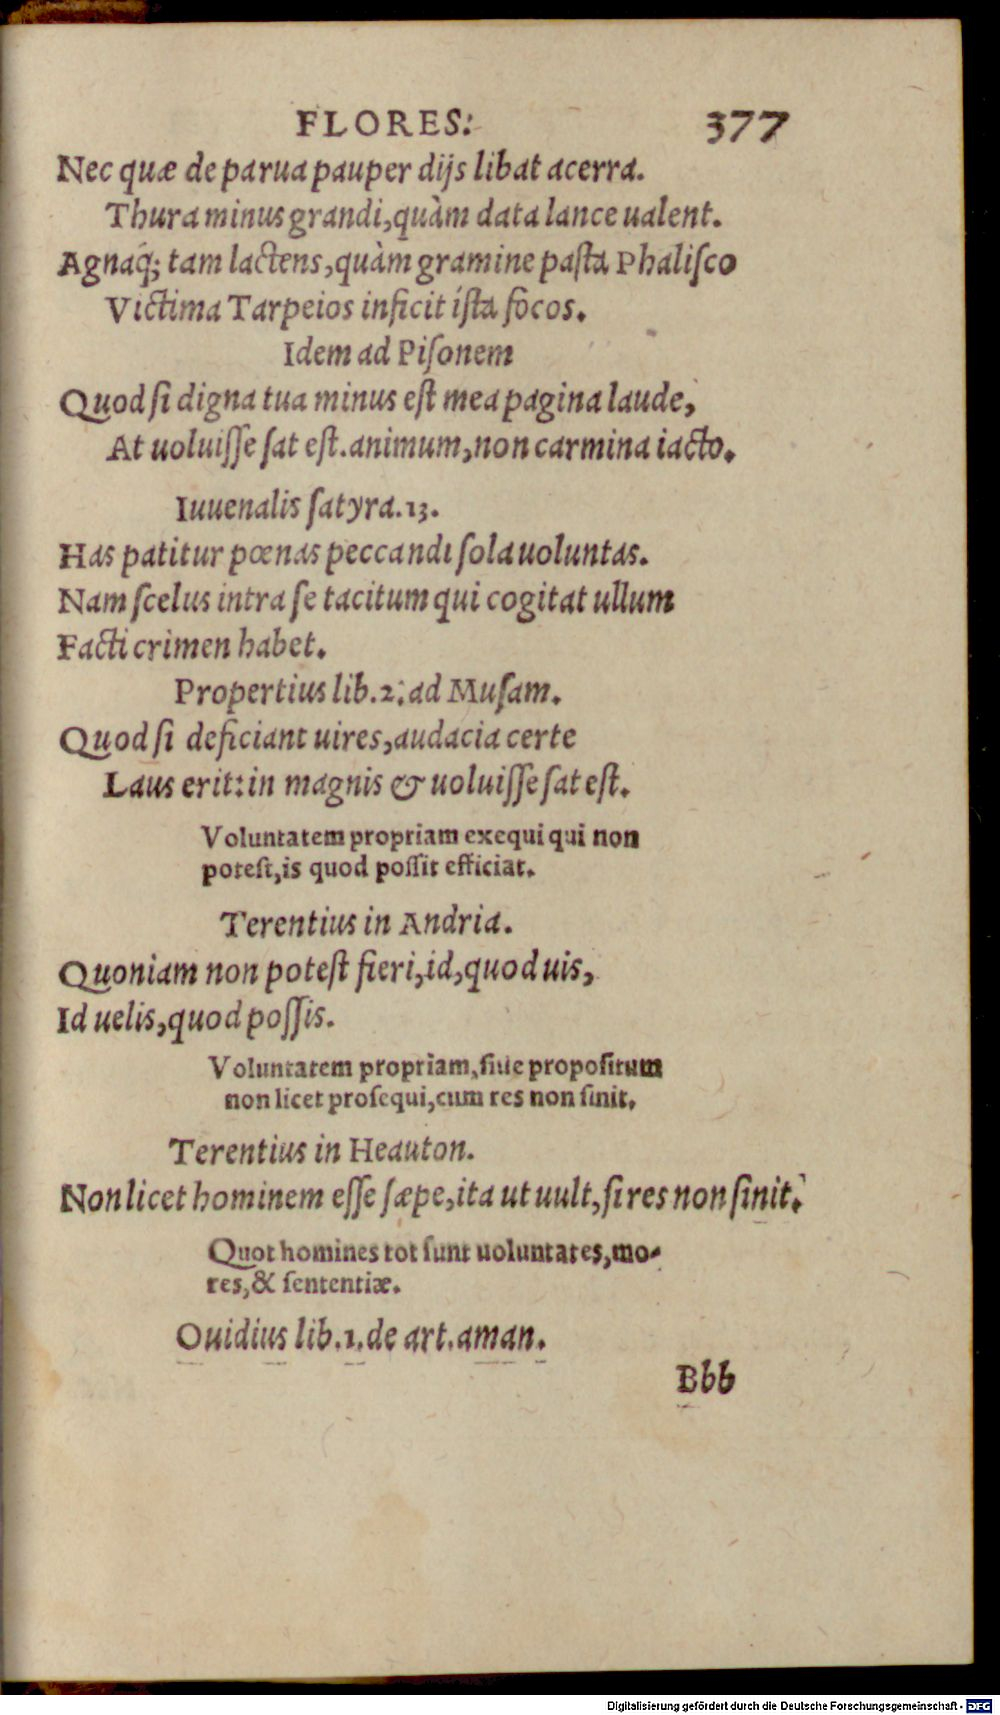 FLORES: 377
Nec quæ de parua pauper dijs libat acerra.
Thura minus grandi, quàm data lance ualent.
Agnaq́; tam lactens, quàm gramine pasta Phalisco
Victima Tarpeios inficit ísta focos.
Idem ad Pisonem
Quod si digna tua minus est mea pagina laude,
At uoluisse sat est. animum, non carmina iacto.
Iuuenalis satyra. 13.
Has patitur pœnas peccandi sola uoluntas.
Nam scelus intra se tacitum qui cogitat ullum
Facti crimen habet.
Propertius lib. 2. ad Musam.
Quod si deficiant uires, audacia certe
Laus erit: in magnis & uoluisse sat est.
Voluntatem propriam exequi qui non
potest, is quod possit efficiat.
Terentius in Andria.
Quoniam non potest fieri, id, quod uis,
Id uelis, quod possis.
Voluntatem propriam, siue propositum
non licet prosequi, cum res non sinit.
Terentius in Heauton.
Non licet hominem esse sæpe, ita ut uult, si res non sinit.
Quot homines tot sunt uoluntates, mo-
res, & sententiæ.
Ouidius lib. 1. de art. aman.
Bbb
Digitalisierung gefördert durch die Deutsche Forschungsgemeinschaft - DFG